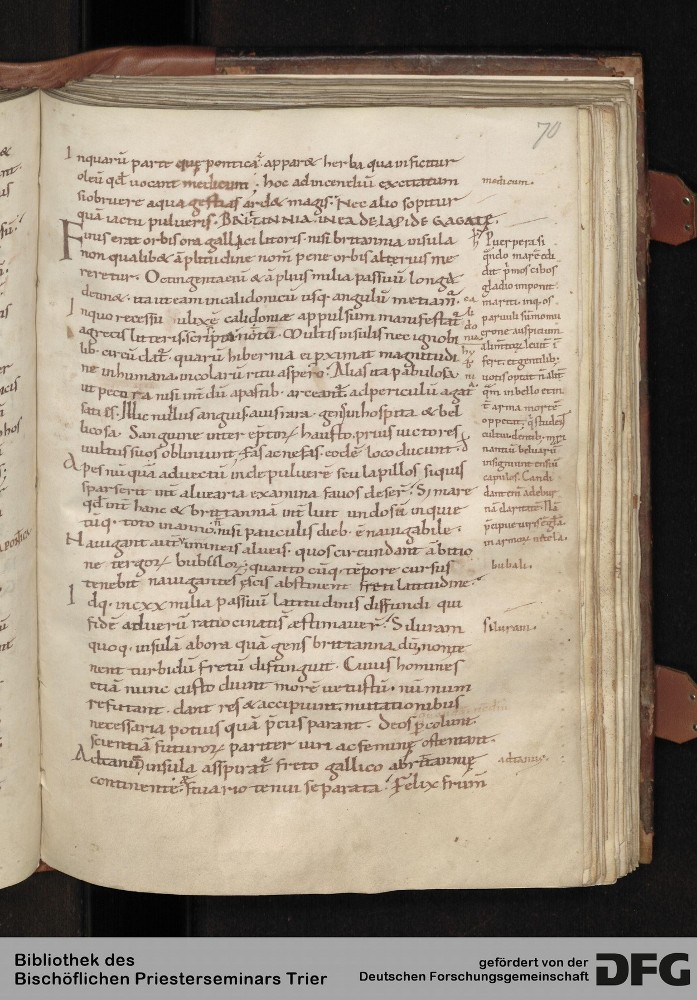 70
Inquarū parte quę pontica ÷ apparet herba qua inficitur
oleū qd uocant medicum; hoc ad incendiū excitatum
si obruere aqua gestias ardet magis. Nec alio sopitur
quā iactu pulueris. BRITANNIA. INEA DE LAPIDE GAGATE.
Finis erat orbis ora gallici litoris. nisi britannia insula
non qualibet āplitudine nom̄ pene orbis alterius me
reretur. Octingenta enī & āplius milia passuū longa
detinet. ita ut eam in calidonicū usq. angulū metiam̄.
In quo recessu ulixē calidoniæ appulsum manifestat
agrecis litteris scripta uotū. Multis insulis nec ignobi
lib. circūdat. quarū hibernia ei pximat magnitudi
ne inhumana incolarū ritu aspero. Alias ita pabulosa
ut pecora nisi int̄dū a pastib. arceant. ad periculū agat
saties. Illic nullus anguis. auis rara. gens inhospita & bel
licosa. Sanguine inter ēptor hausto. prius uictores
uultus suos oblinunt. Fas ac nefas. eodē loco ducunt.
Apes nūquā aduectū inde puluerē seu lapillos si quis
sparserit int̄ aluearia examina fauos deser̄. Si mare
qd int̄ hanc & brittanniā int̄luit undosū inquie
tūq. toto in anno. nisi pauculis dieb. ē nauigabile.
Nauigant aut̄ uimineis alueis. quos circundant ābitio
ne tergor bubulor; quanto cūq. tēpore cursus
tenebit nauigantes escis abstinent freti latitudinē.
Idq. in cxx milia passuū latitudinis diffundi qui
fidē ad uerū ratiocinatis æstimauer̄. Siluram
quoq. insulā ab ora quā gens brittanna dūnonie
nent turbidū fretū distinguit. Cuius homines
etiā nunc custodiunt morē uetustū. nūmum
refutant. dant res & accipiunt. mutationibus
necessaria potius quā p̄cus parant. Deos pcolunt.
scientiā futuror pariter uiri ac feminę ostentant.
Adtanus insula asspirat freto gallico a brittannię
continente. ęstuario tenui separata. Felix frum̄
medicum.
Puerpera si
qn̄do marē edi
dit p̄mos cibos
gladio imponit
mariti. inq. os
paruuli sūmo mu
crone auspiciū
alimtor leuit̄ i
fert. et gentilib.
uotis optat n̄ alit̄
quā in bello et int̄
arma mortē
oppetat. q̄ student
cultui dentib. mari
nantiū beluarū
insigniunt ensiū
capulos. Candi
dant enī ad ebur
nā claritatē. Nā
p̄cipue uiris gl̄a
in armor nitela.
bubali.
Siluram.
adtanus.
Bibliothek des
Bischöflichen Priesterseminars Trier
gefördert von der
Deutschen Forschungsgemeinschaft
DFG